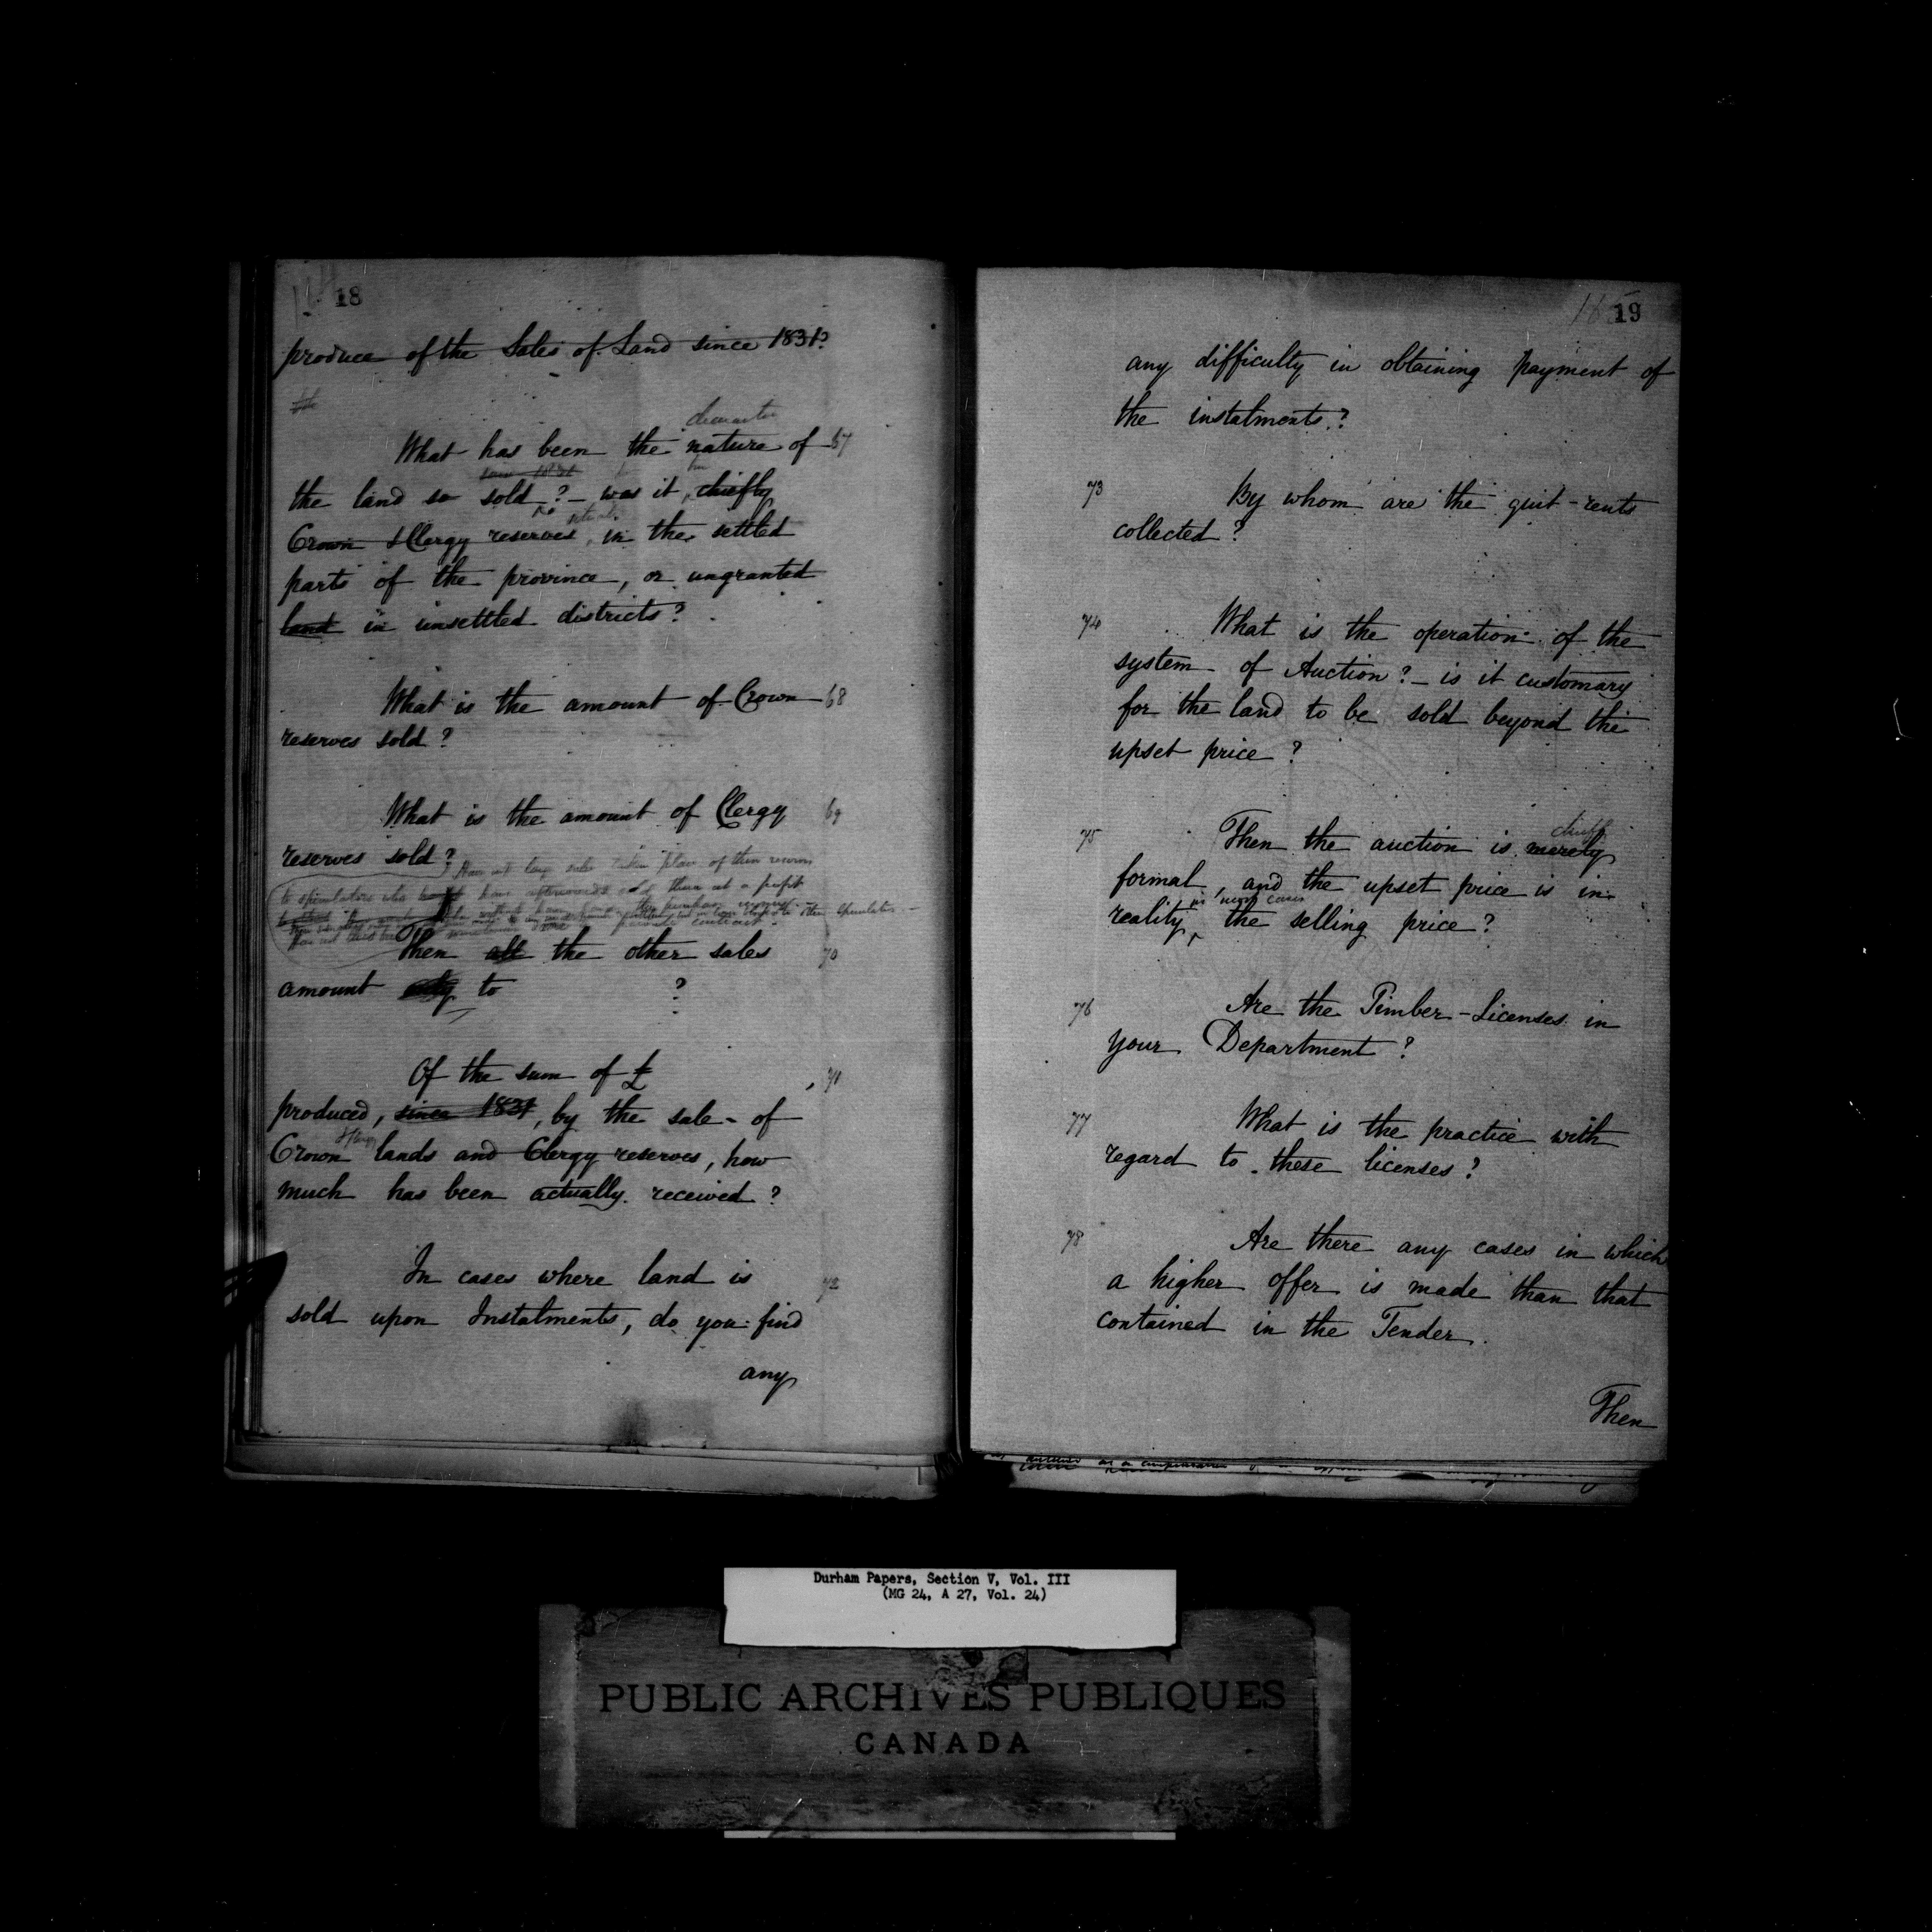 18
produce of the Sales of Land since 1831?
character
What has been the nature of 67
the land so sold? – was it, chiefly
Crown & Clergy reserves, in the settled
parts of the province, or ungranted
land in unsettled districts?
What is the amount of Crown 68
reserves sold?
What is the amount of Clergy 69
reserves sold?
to speculators who have afterwards sold them at a profit
Then all the other sales 70
amount only to ?
Of the sum of £ 71
produced, since 1831, by the sale of
Crown lands and Clergy reserves, how
much has been actually received?
In cases where land is 72
sold upon Instalments, do you find
any
19
any difficulty in obtaining payment of
the instalments?
73 By whom are the quit-rents
collected?
74 What is the operation of the
system of Auction? – is it customary
for the land to be sold beyond the
upset price?
chiefly
75 Then the auction is merely
formal, and the upset price is in
in most cases
reality, the selling price?
76 Are the Timber-Licenses in
your Department?
77 What is the practice with
regard to these licenses?
78 Are there any cases in which
a higher offer is made than that
contained in the Tender.
Then
Durham Papers, Section V, Vol. III
(MG 24, A 27, Vol. 24)
PUBLIC ARCHIVES PUBLIQUES
CANADA